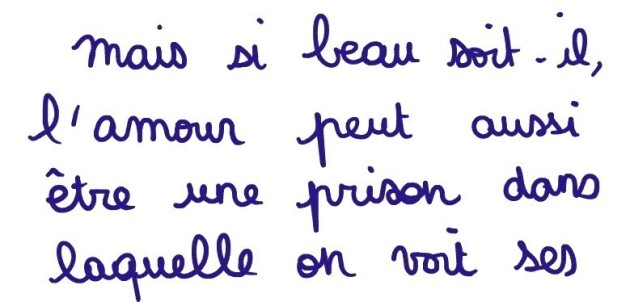 mais si beau soit-il,
l'amour peut aussi
être une prison dans
laquelle on voit ses